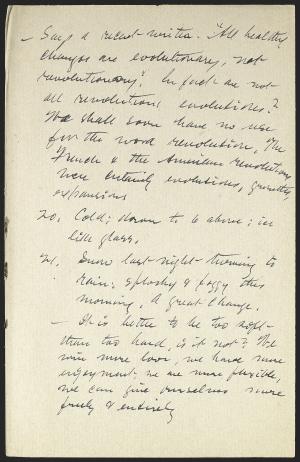 — Says a recent writer. "All healthy
changes are evolutionary, not
revolutionary". In fact are not
all revolutions evolutions?
We shall soon have no use
for the word revolution. The
French & the American revolutions
were entirely evolutions, growths,
expansions
20. Cold; down to 6 above; ice
like glass.
21. Snow last night turning to
rain; sploshy & foggy this
morning. A great change.
— It is better to be too
than too hard, is it not? We
win more love, we have more
enjoyment, we are more flexible,
we can give ourselves more
freely & entirely